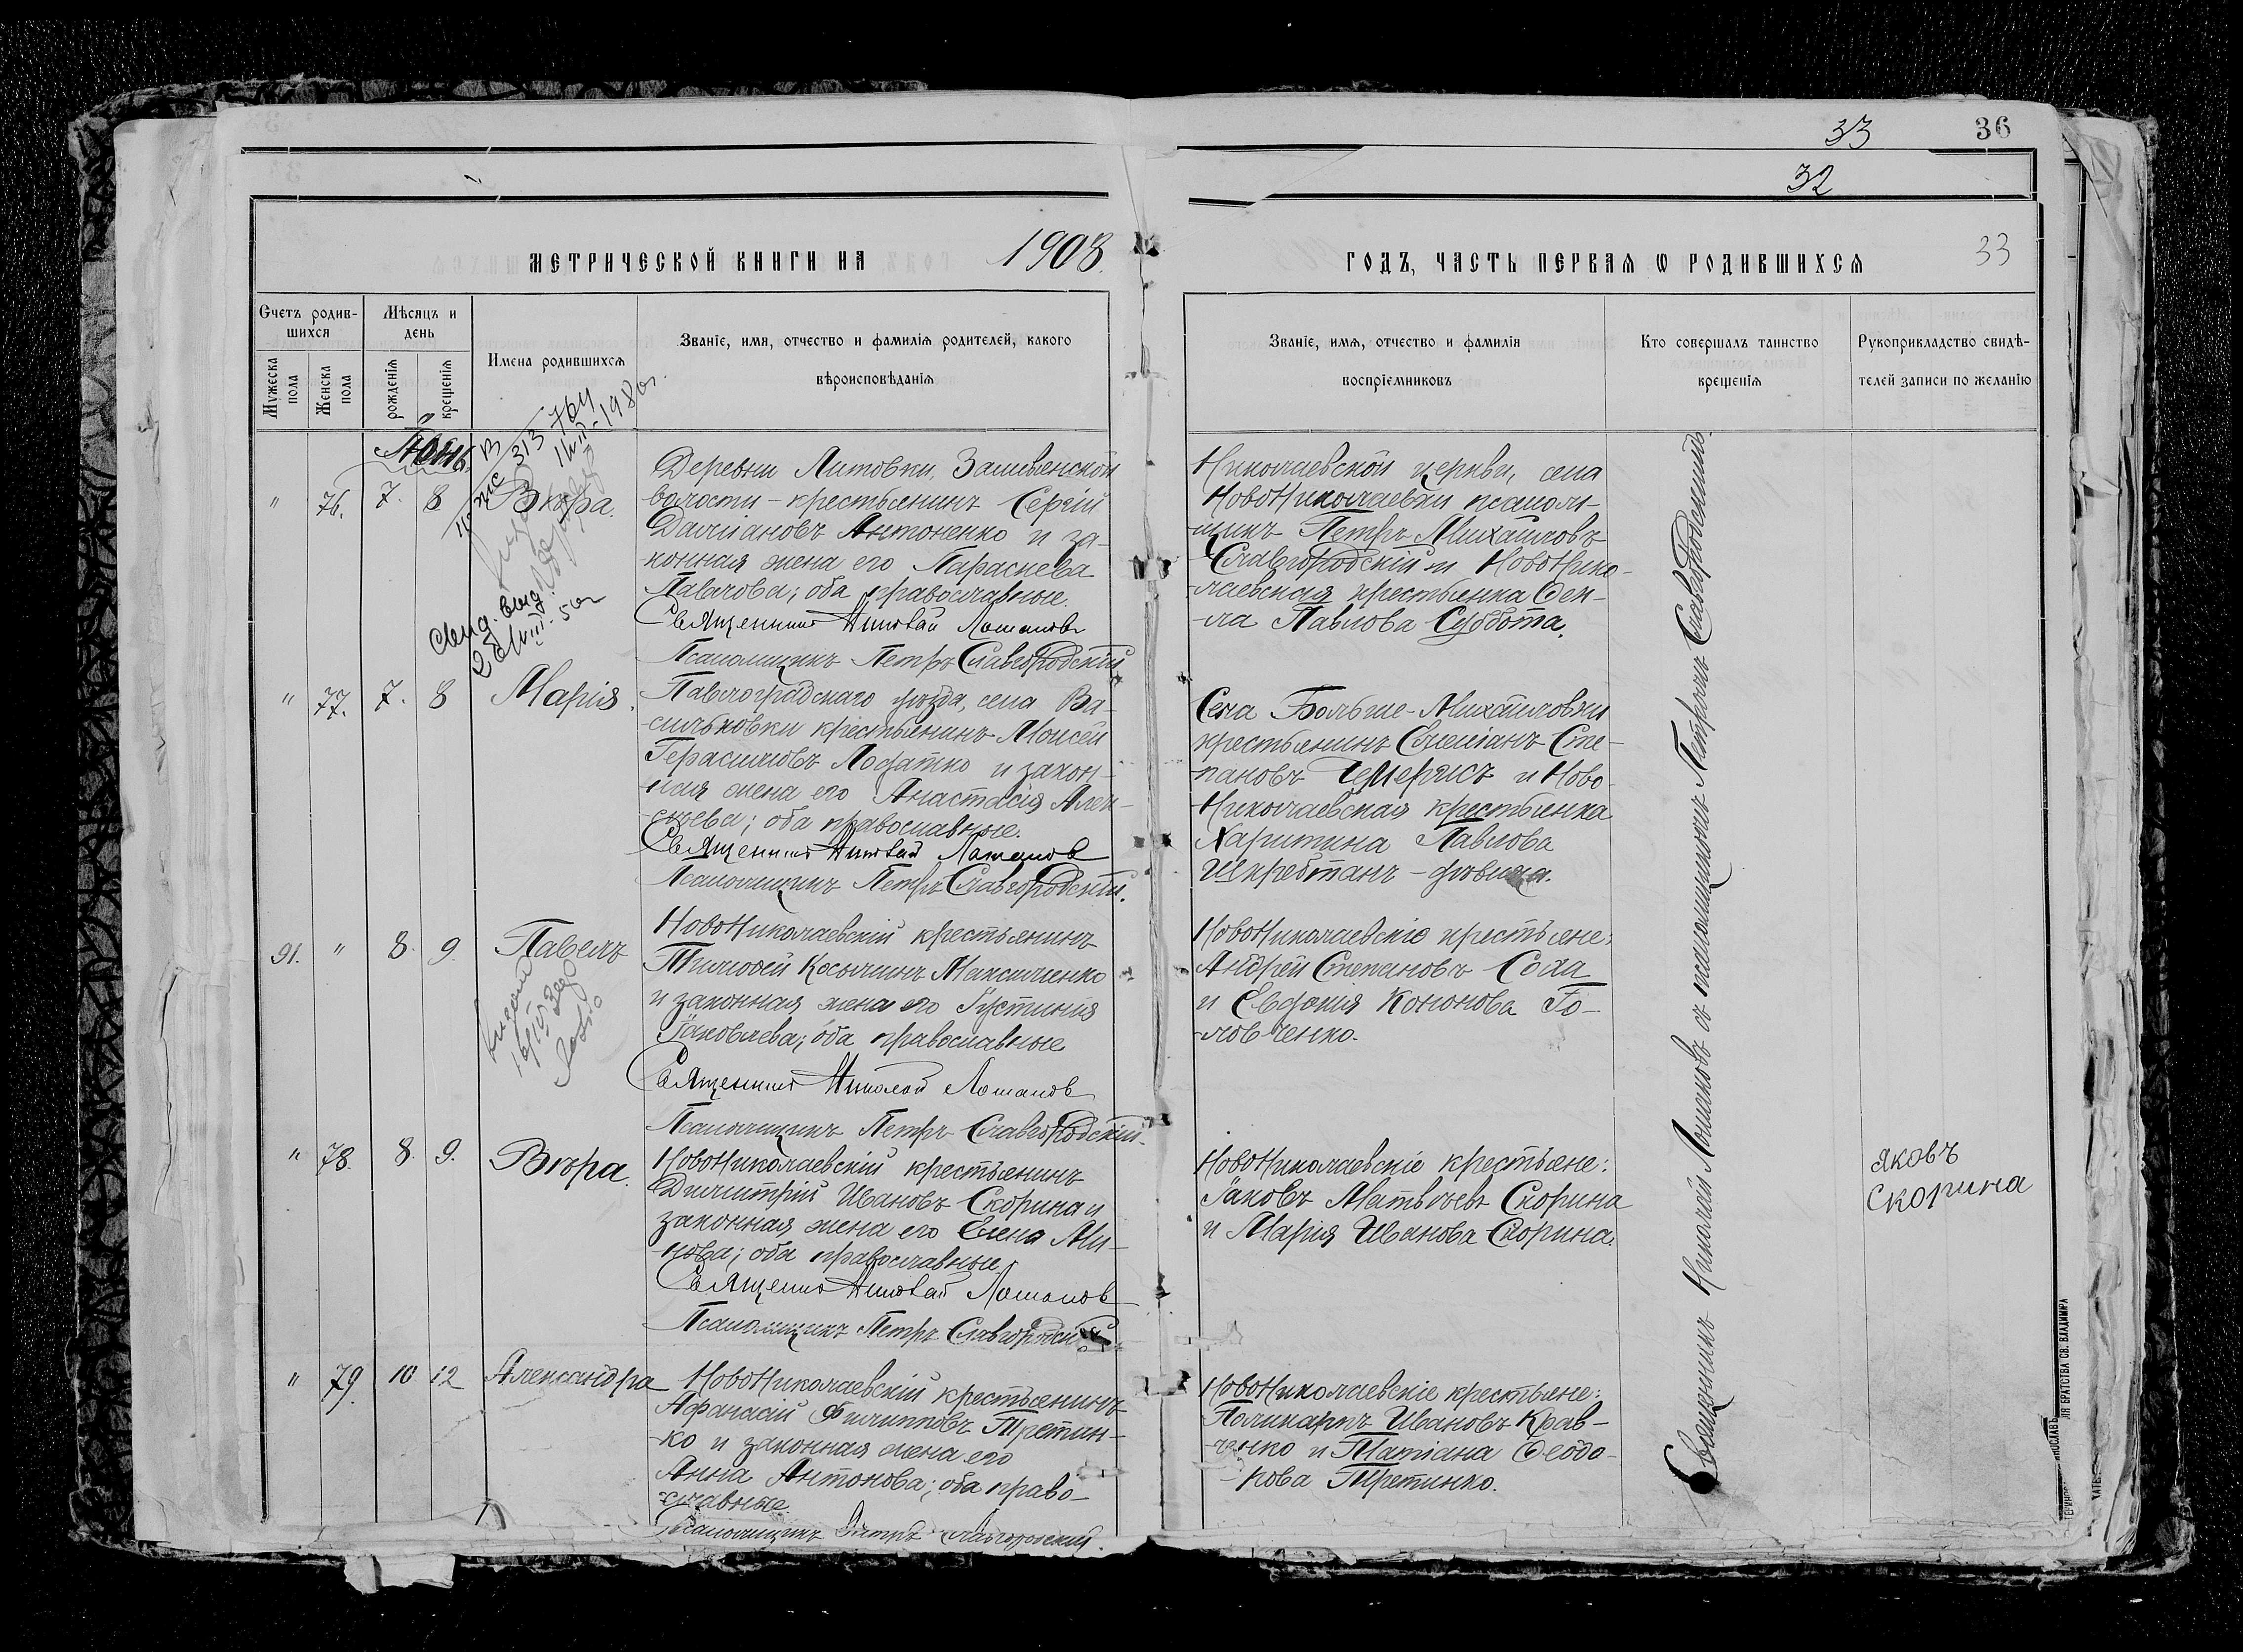 33
36
32
МЕТРИЧЕСКОЙ КНИГИ НА 1908
ГОДЪ, ЧАСТЬ ПЕРВАЯ Ѡ РОДИВШИХСЯ
33
Счетъ родив-
шихся
Мѣсяцъ и
день
Мужеска
пола
Женска
пола
рожденія
крещенія
Имена родившихся
Званіе, имя, отчество и фамилія родителей, какого
вѣроисповѣданія
Званіе, имя, отчество и фамилія
воспріемниковъ
Кто совершалъ таинство
крещенія
Рукоприкладство свидѣ-
телей записи по желанію
Іюнь.
" 76. 7. 8 Вѣра.
Деревни Литовки,
волости - крестьянинъ Сергій
Даміановъ Антоненко и за-
конная жена его Параскева
Павлова; оба православные.
Священникъ Николай
Псаломщикъ Петръ Славгородскій
Николаевской церкви, села
НовоНиколаевки псалом-
щикъ Петръ Михайловъ
Славгородскій и НовоНико-
лаевская крестьянка Ѳек-
-ла Павлова Суббота.
свид. выд.
" 77. 7. 8 Марія.
Павлоградскаго уѣзда, села Ва-
сильковки крестьянинъ Моисей
Герасимовъ Лофатко и закон-
ная жена его Анастасія Алек-
сѣева; оба православные.
Священникъ Николай
Псаломщикъ Петръ Славгородскій.
Села Больше-Михайловки
крестьянинъ Сте-
пановъ Чемерисъ и Ново-
Николаевская крестьянка
Харитина Павлова
Шкребтанъ - дѣвица.
91. " 8. 9. Павелъ
НовоНиколаевскій крестьянинъ
Тимофей Косьминъ Максименко
и законная жена его Іустинія
Іаковлева; оба православные
Священникъ Николай
Псаломщикъ Петръ Славгородскій.
НовоНиколаевскіе крестьяне:
Андрей Степановъ Соха
и Евфимія Кононова Го-
-ловченко.
" 78. 8. 9. Вѣра.
НовоНиколаевскій крестьянинъ
Димитрій Ивановъ Скорина и
законная жена его Елена Ми-
нова; оба православные
Священникъ Николай
Псаломщикъ Петръ Славгородскій
НовоНиколаевскіе крестьяне:
Іаковъ Матвѣевъ Скорина
и Марія Иванова Скорина.
Яковъ
Скорина
" 79. 10 12 Александра
НовоНиколаевскій крестьянинъ
Афанасій Филипповъ Третин-
-ко и законная жена его
Анна Антонова; оба право-
-славные
Псаломщикъ Петръ Славгородскій.
НовоНиколаевскіе крестьяне:
Поликарпъ Ивановъ Крав-
-ченко и Татіана Ѳеодо-
-рова Третинко.
Священникъ Николай съ псаломщикомъ Петромъ Славгородскимъ
ЛЯ БРАТСТВА СВ. ВЛАДИМІРА